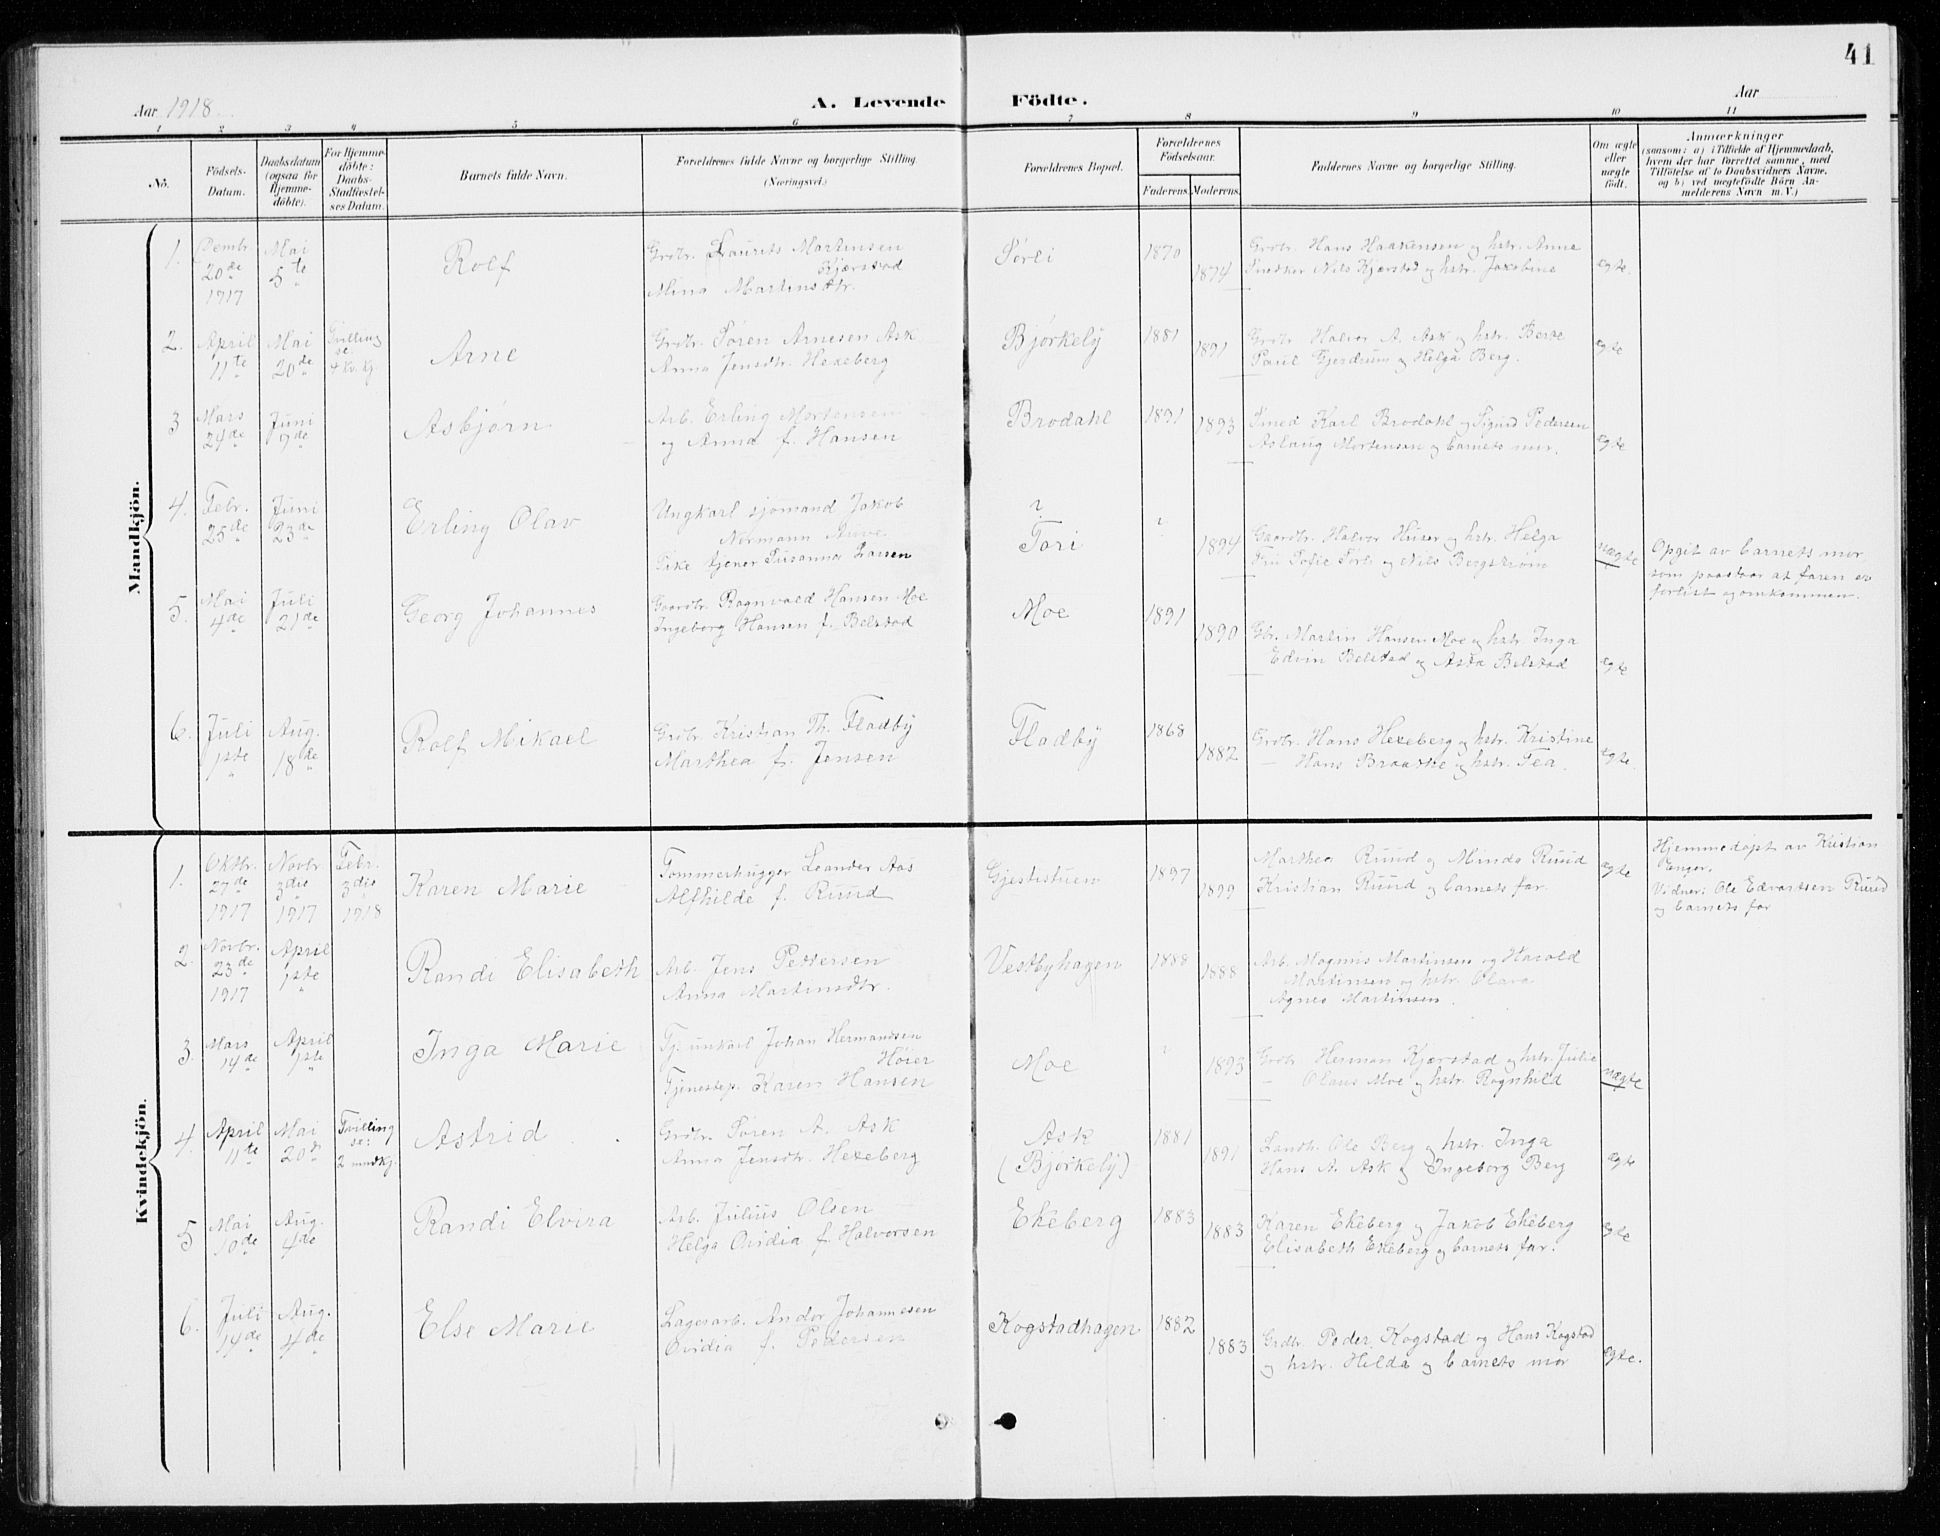 41
Aar 1918
A. Levende Födte.
Aar
1 2 3 4 5 6 7 8 9 10 11
No.
Födsels-Datum.
Daabsdatum (ogsaa for Hjemme-döbte).
For Hjemme-döbte: Daabs-Stadfæstel-ses Datum.
Barnets fulde Navn.
Forældrenes fulde Navne og borgerlige Stilling. (Næringsvei.)
Forældrenes Bopæl.
Forældrenes Födselsaar.
Faderens. Moderens.
Faddernes Navne og borgerlige Stilling.
Om ægte eller uægte födt.
Anmærkninger
(saasom: a) i Tilfælde af Hjemmedaab,
hvem der har forrettet samme, med
Tilföielse af to Daabsvidners Navne,
og b) ved uægtefödte Börn An-
melderens Navn m. V.)
Mandkjön.
1. Dembr. 20de 1917
Mai 5te
Rolf
Grdbr. Laurits Martinsen
Kjærstad
Mina Martinsdtr.
Sørli
1870
1874
Grdbr. Hans Haakensen og hstr. Anna
Snedker Nils Kjærstad og hstr. Jakobine
ægte.
2. April 11te
Mai 20de
Tvilling se: 4 kv. kj.
Arne
Grdbr. Søren Arnesen Ask
Anna Jensdtr. Hexeberg
Bjørkely
1881
1891
Grdbr. Halvor A. Ask og hstr. Berte
Paul Gjerdrum og Helga Berg.
ægte
3 Mars 24de
Juni 9de
Asbjørn
Arb. Erling Mortensen
og Anna f. Hansen
Brodahl
1891
1893
Smed Karl Brodahl og Sigrid Pedersen
Aslaug Mortensen og barnets mor.
ægte
4. Febr. 25de
Juni 23de
Erling Olav
Ungkarl sjømand Jakob
Normann
Pike tjener Susanna Larsen
?
Tori
?
1894
Gaardbr. Halvor Huser og hstr. Helga
Fru Sofie og Nils Bergstrøm
uægte
Opgit av barnets mor
som paastaar at faren er
forlist og omkommen.
5. Mai 4de
Juli 21de
Georg Johannes
Gaardbr. Ragnvald Hansen Moe
Ingeborg Hansen f. Belstad
Moe
1891
1890
Gbr. Martin Hansen Moe og hstr. Inga
Edvin Belstad og Asta Belstad
ægte
6. Juli 1ste
Aug. 18de
Rolf Mikael
Grdbr. Kristian Th. Fladby
Marthea f. Jensen
Fladby
1868
1882
Grdbr. Hans Hexeberg og hstr. Kristine
— Hans Braathe og hstr. Tea.
ægte.
Kvindekjön.
1. Oktbr. 27de 1917
Novbr. 3die 1917
Febr. 3die 1918
Karen Marie
Tømmerhugger Leander Aas
Alfhilde f. Ruud
Gjestistuen
1897
1899
Marthea Ruud og Minda Ruud
Kristian Ruud og barnets far.
ægte
Hjemmedøpt av Kristian
Vidner: Ole Edvartsen Ruud
og barnets far
2. Novbr. 23de 1917
April 1ste
Randi Elisabeth
Arb. Jens Pettersen
Anna Martinsdtr.
Vestbyhagen
1888
1888
Arb. Magnus Martinsen og Harald
Martinsen og hstr. Olava
Agnes Martinsen.
3. Mars 14de
April 1ste
Inga Marie
Tj. unkarl Johan Hermandsen
Høier
Tjenestep. Karen Hansen
Moe
?
1893
Grdbr Herman Kjærstad og hstr. Julie
— Olaus Moe og hstr. Ragnhild
uægte
4. April 11te
Mai 20de
Tvilling se: 2 mndkj.
Astrid
Grdbr. Søren A. Ask
Anna Jensdtr. Hexeberg
Ask
(Bjørkely)
1881
1891
Landh. Ole Berg og hstr. Inga
Hans A. Ask og Ingeborg Berg
ægte
5 Mai 10de
Aug. 4de
Randi Elvira
Arb. Julius Olsen
Helga Ovidia f. Halvorsen
Ekeberg
1883
1883
Karen Ekeberg og Jakob Ekeberg
Elisabeth Ekeberg og barnets far.
ægte
6. Juli 14de
Aug. 4de
Else Marie
Lagerarb. Andor Johannesen
Ovidia f. Pedersen
Kogstadhagen
1882
1883
Grdbr. Peder Kogstad og Hans Kogstad
og hstr. Hilda og barnets mor
ægte.